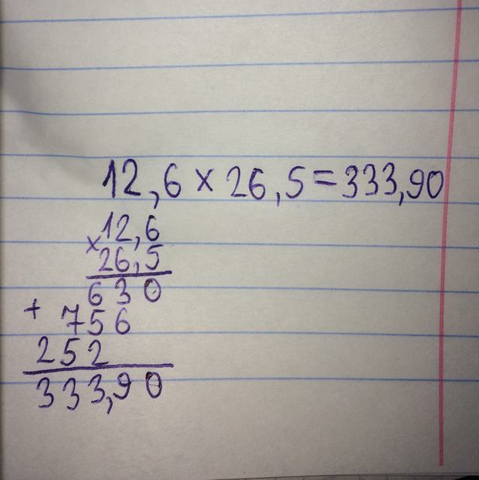 12,6 × 26,5 = 333,90
12,6
× 26,5
630
+ 756
252
333,90